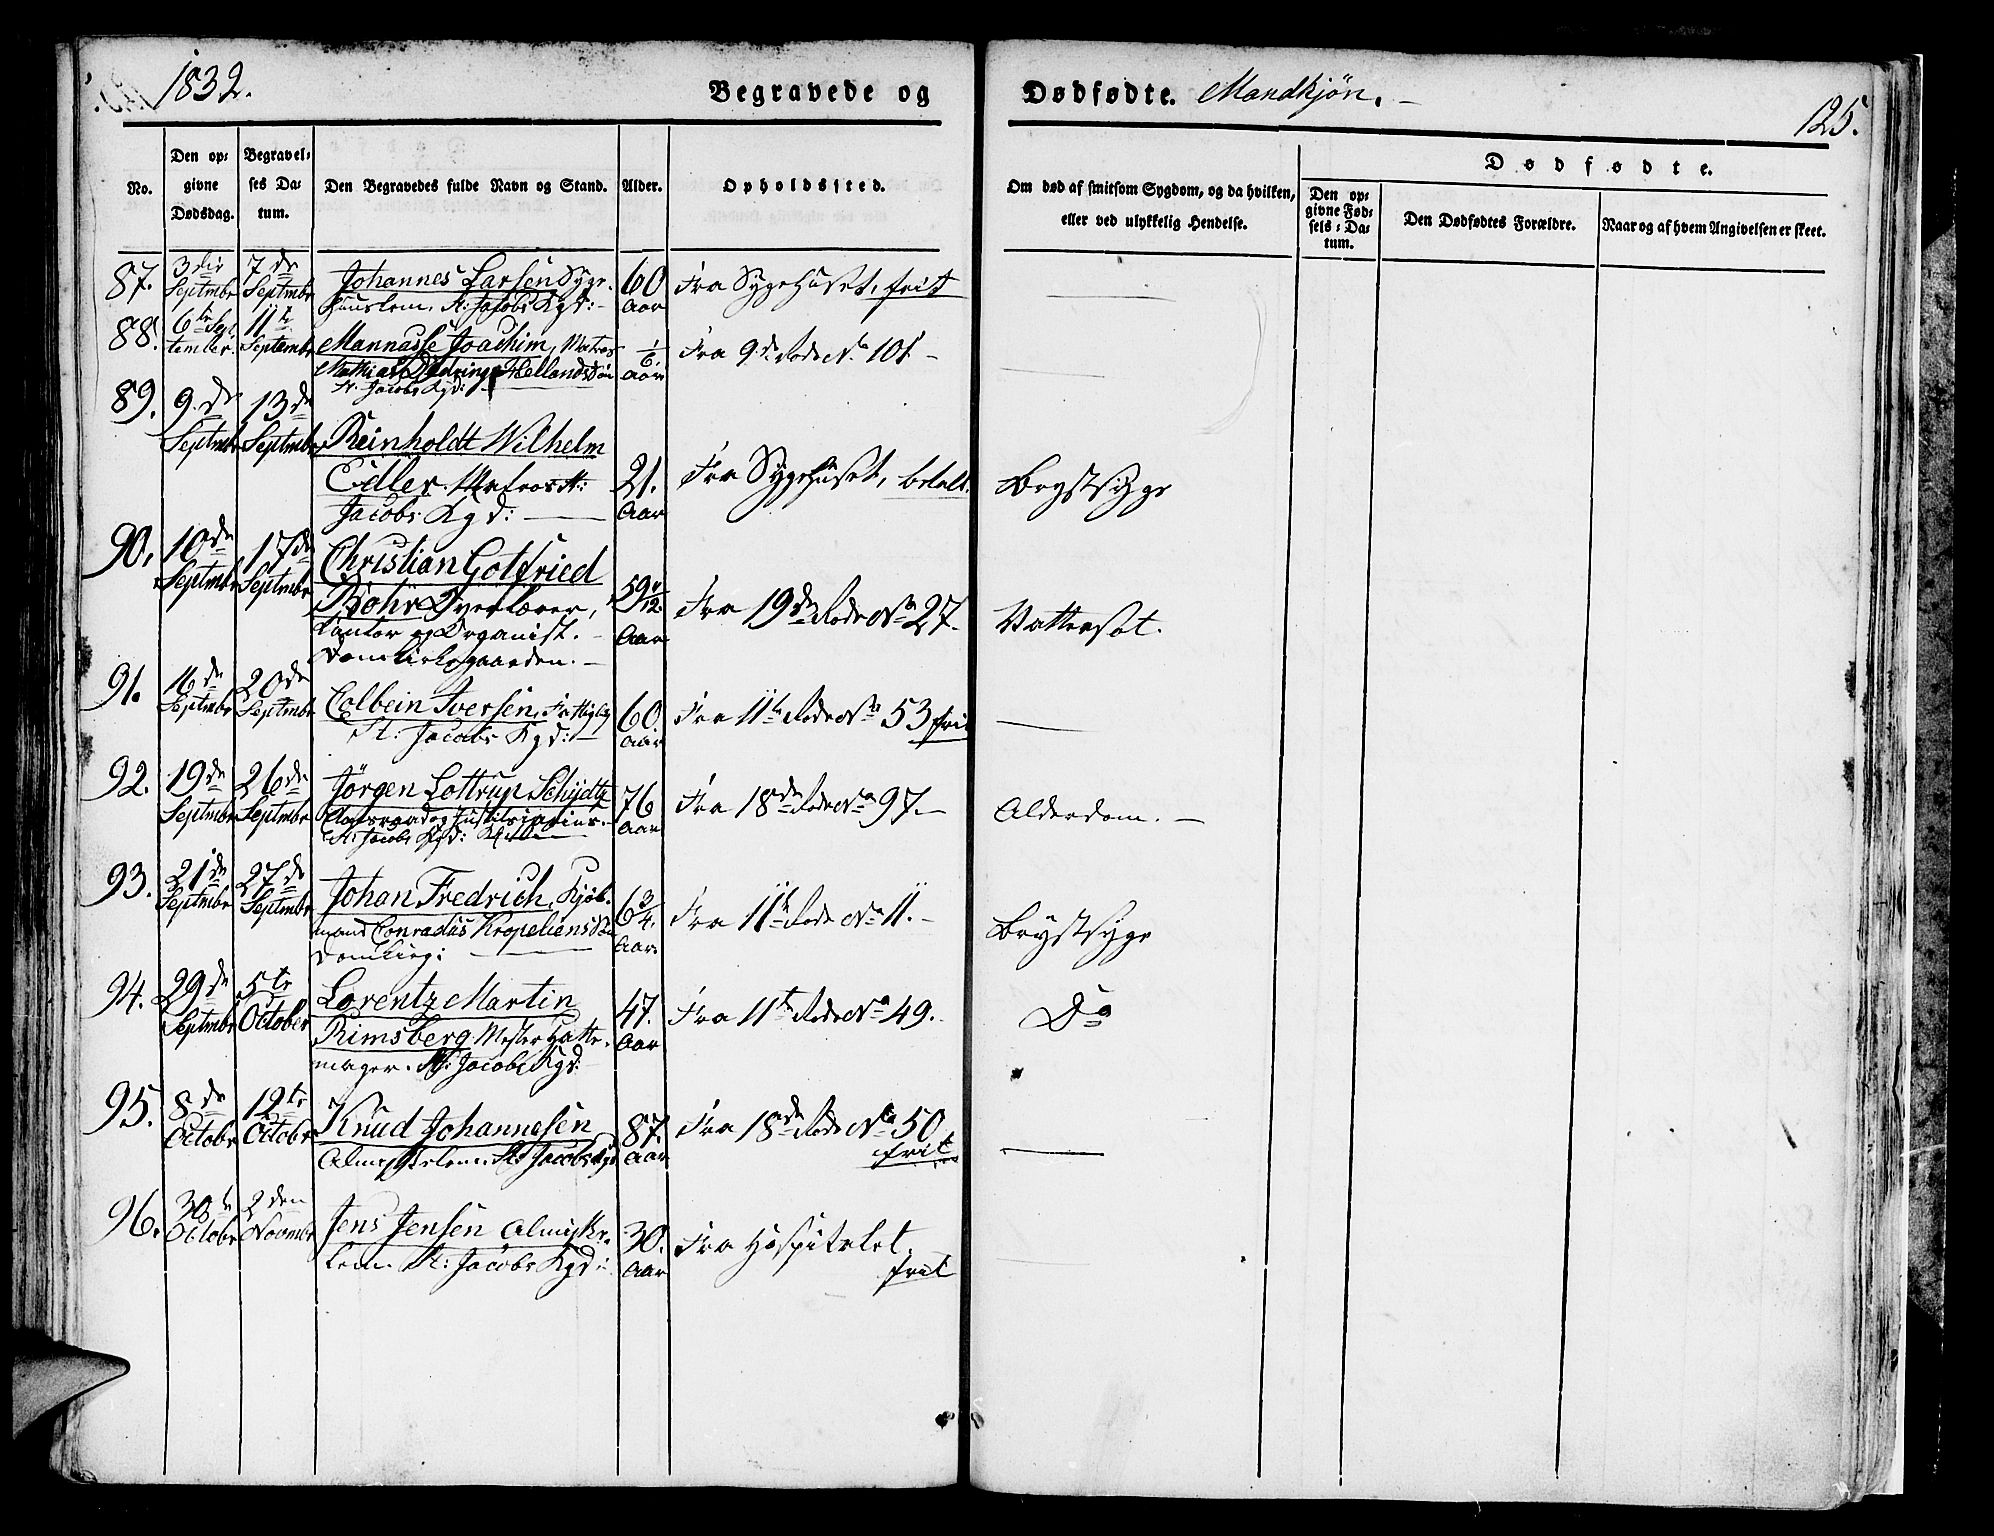 1832.
Begravede og Dødfødte. Mandkjøn. -
125.
No.
Den op-
givne
Dødsdag.
Begravel-
ses Da-
tum.
Den Begravedes fulde Navn og Stand.
Alder.
Opholdssted.
Om død af smitsom Sygdom, og da hvilken,
eller ved ulykkelig Hendelse.
Dødfødte.
Den op-
givne Fød-
sels-Da-
tum.
Den Dødfødtes Forældre.
Naar og af hvem Angivelsen er skeet.
87. Septmbr 7de Septmbr Johannes Larsen Syge-
huuslem. St: Jacobs Kgd: - 60 Aar Fra Sygehuset, frit
88. 6te September 11te Septembr Mannasse Joachim, Matros
Mathias Hellands Søn
St. Jacobs Kgd: 1/6 Aar Fra 9de Rode No 101 -
89. 9de Septmbr 13de Septmbr Reinholdt Wilhelm
Edler. Matros St:
Jacobs Kgd: 21. Aar Fra Sygehuset, betalt. Brystsyge
90. 10de Septmbr 17de Septmbr Christian Gotfried
Bohr Overlærer,
Cantor og Organist. -
Domkirkegaarden. - 59 /12 Aar Fra 19de Rode No 27. Vattersot.
91. 16de Septmbr 20de Septmbr Colbein Iversen,
St. Jacobs Kgd: - 60 Aar Fra 11te Rode No 53 frit
92. 19de Septmbr 26de Septmbr Jørgen Lottrup Schydtz
Etatsraad og Justitsiarius. -
St: Jacobs Kgd: 76 Aar Fra 18de Rode No 97. - Alderdom. -
93. 21de Septmbr 27de Septmbr Johan Fredrich, Kjøb-
mand Conradus Kropeliens Søn
Domkirg: 6 3/4. Aar Fra 11te Rode No 11. - Brystsyge
94. 29de Septmbr 5te October Lorentz Martin
Rimsberg Mester Hatte-
mager. St: Jacobs Kgd: 47. Aar Fra 11te Rode No 49. Do
95. 8de Octobr 12te Octobr Knud Johannesen
Almisselem. St: Jacobs Kgd 87. Aar Fra 18de Rode No 50
frit
96. 30te Octobr 2den Novmbr Jens Jensen Almisse-
lem. St: Jacobs Kgd: 30. Aar Fra Hospitalet.
frit